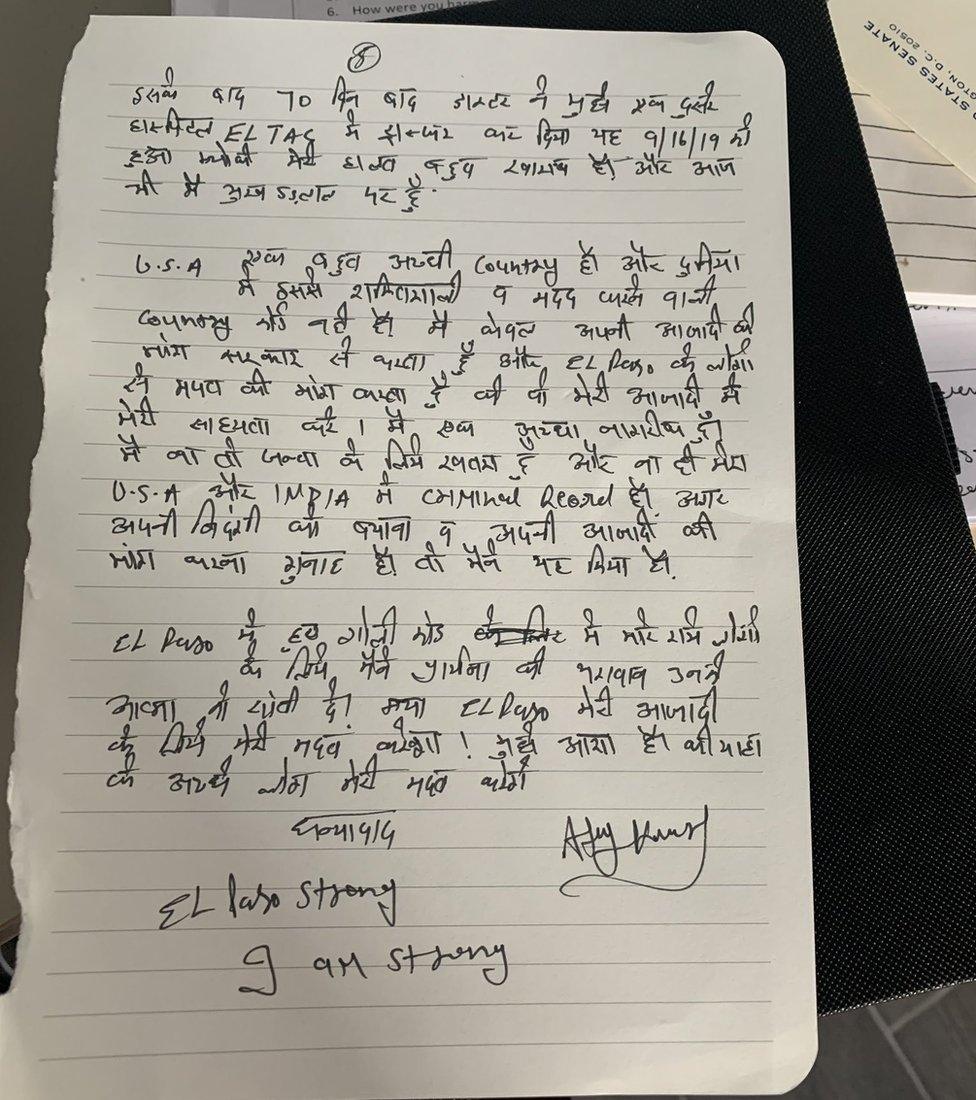 6. How were you har
STATES SENATE
TON, D.C. 20510
8
इसके बाद 70 दिन बाद डाक्टर ने मुझे एक दुसरे
हास्पिटल EL TAC में ट्रास्फर कर दिया यह 9/16/19 को
हुआ क्योकी मेरी हालत बहुत खराब है। और आज
भी मै भुख हड़ताल पर हूँ.
U.S.A एक बहुत अच्छी Country है। और दुनिया
में इससे शक्तिशाली व मदद करने वाली
Country कोई नही है। मै केवल अपनी आजादी की
मांग सरकार से करता हूँ और EL Paso के लोगो
से मदद की मांग करता हूँ की वो मेरी आजादी मे
मेरी साहयता करे। मै एक अच्छा नागरीक हूँ।
मै ना तो जनता के लिये खतरा हूँ और ना ही मेरा
U.S.A और INDIA में Criminal Record है। अगर
अपनी जिदंगी को बचाना व अपनी आजादी की
मांग करना गुनाह है। तो मैने यह किया है.
EL Paso मे हुए गोली कांड मे मारे गये लोगो
के लिये मैने प्रार्थना की भगवान उनकी
आत्मा को शांती दे! क्या EL Paso मेरी आजादी
के लिये मेरी मदद करेगा! मुझे आशा है। की यहां
के अच्छे लोग मेरी मदद करेगें
धन्यावाद
Ajay Kumar
EL Paso Strong
I am strong